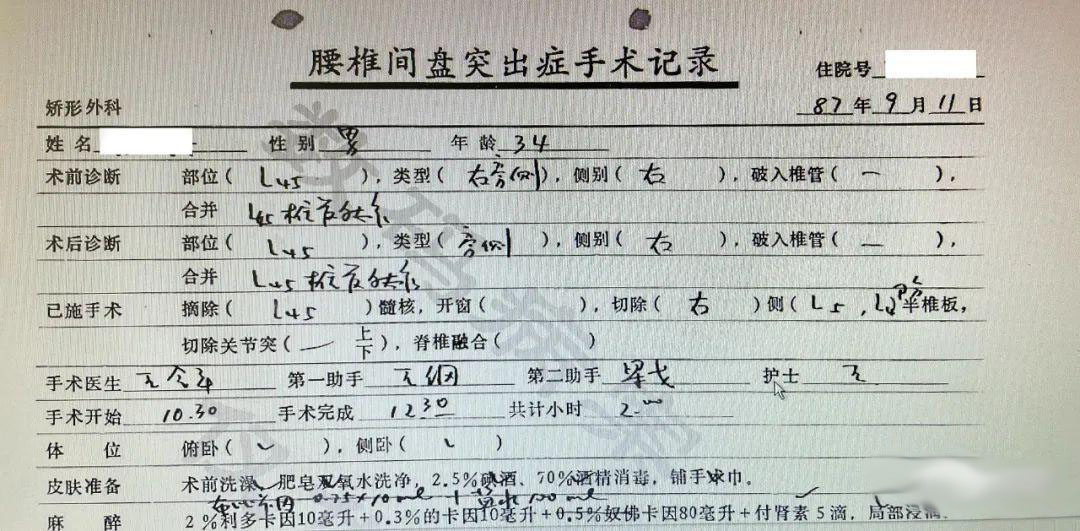 腰椎间盘突出症手术记录
住院号
矫形外科 87年9月11日
姓名 性别 男 年龄 34
术前诊断 部位( L45 ),类型( 右旁侧 ),侧别( 右 ),破入椎管( 一 ),
合并 L45
术后诊断 部位( L45 ),类型( 旁侧 ),侧别( 右 ),破入椎管( 一 ),
合并 L45
已施手术 摘除( L45 )髓核,开窗( ),切除( 右 )侧( L5,L4 半椎板,
切除关节突( 一 上下 ),脊椎融合( )
手术医生 第一助手 第二助手 护士 王
手术开始 10.30 手术完成 12.30 共计小时 2.00
体位 俯卧( ✓ ),侧卧( ✓ )
皮肤准备 术前洗澡、肥皂双氧水洗净,2.5%碘酒、70%酒精消毒,铺手术巾。
0.75×10ml + 盐水100ml
麻醉 2%利多卡因10毫升+0.3%的卡因10毫升+0.5%奴佛卡因80毫升+付肾素5滴,局部浸润